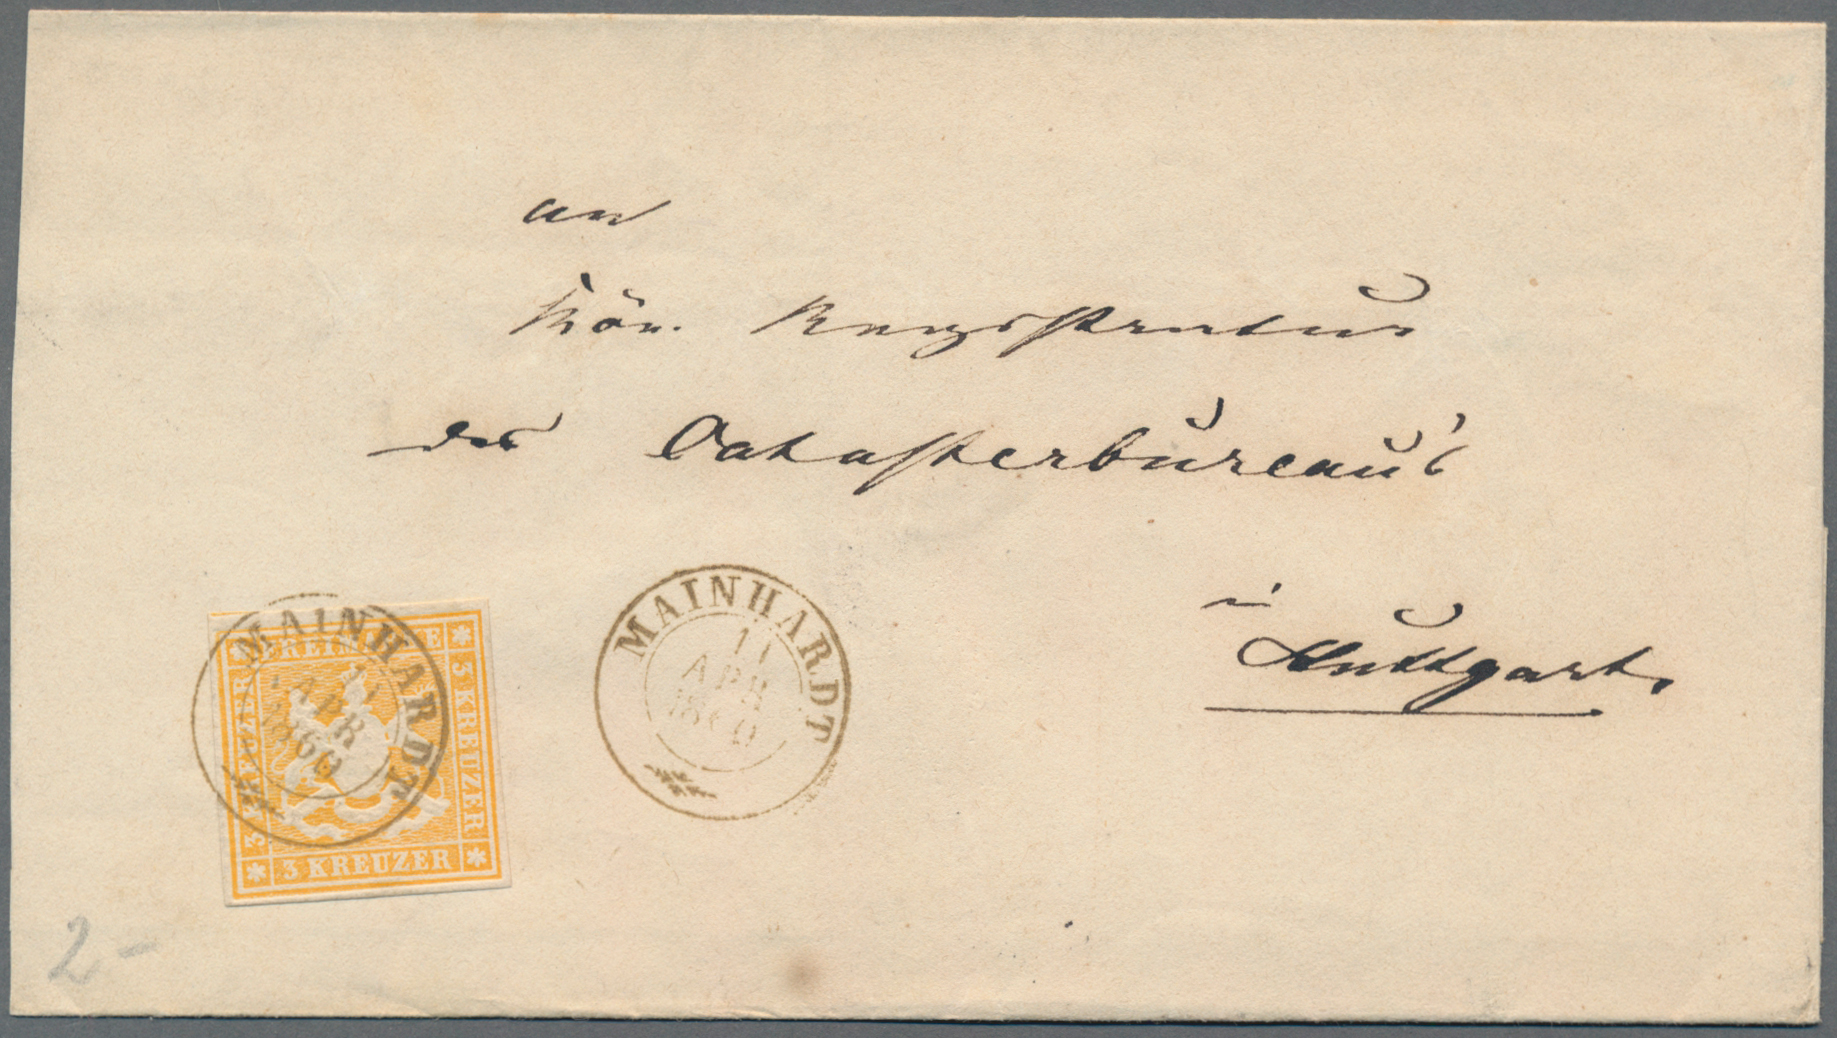 an
Kön. Registratur
des Catasterbüreau's
in
Stuttgart.
MAINHARDT
11
APR
1860
MAINHARDT
11
APR
1860
FREIMARKE
3 KREUZER
3 KREUZER
3 KREUZER
2-